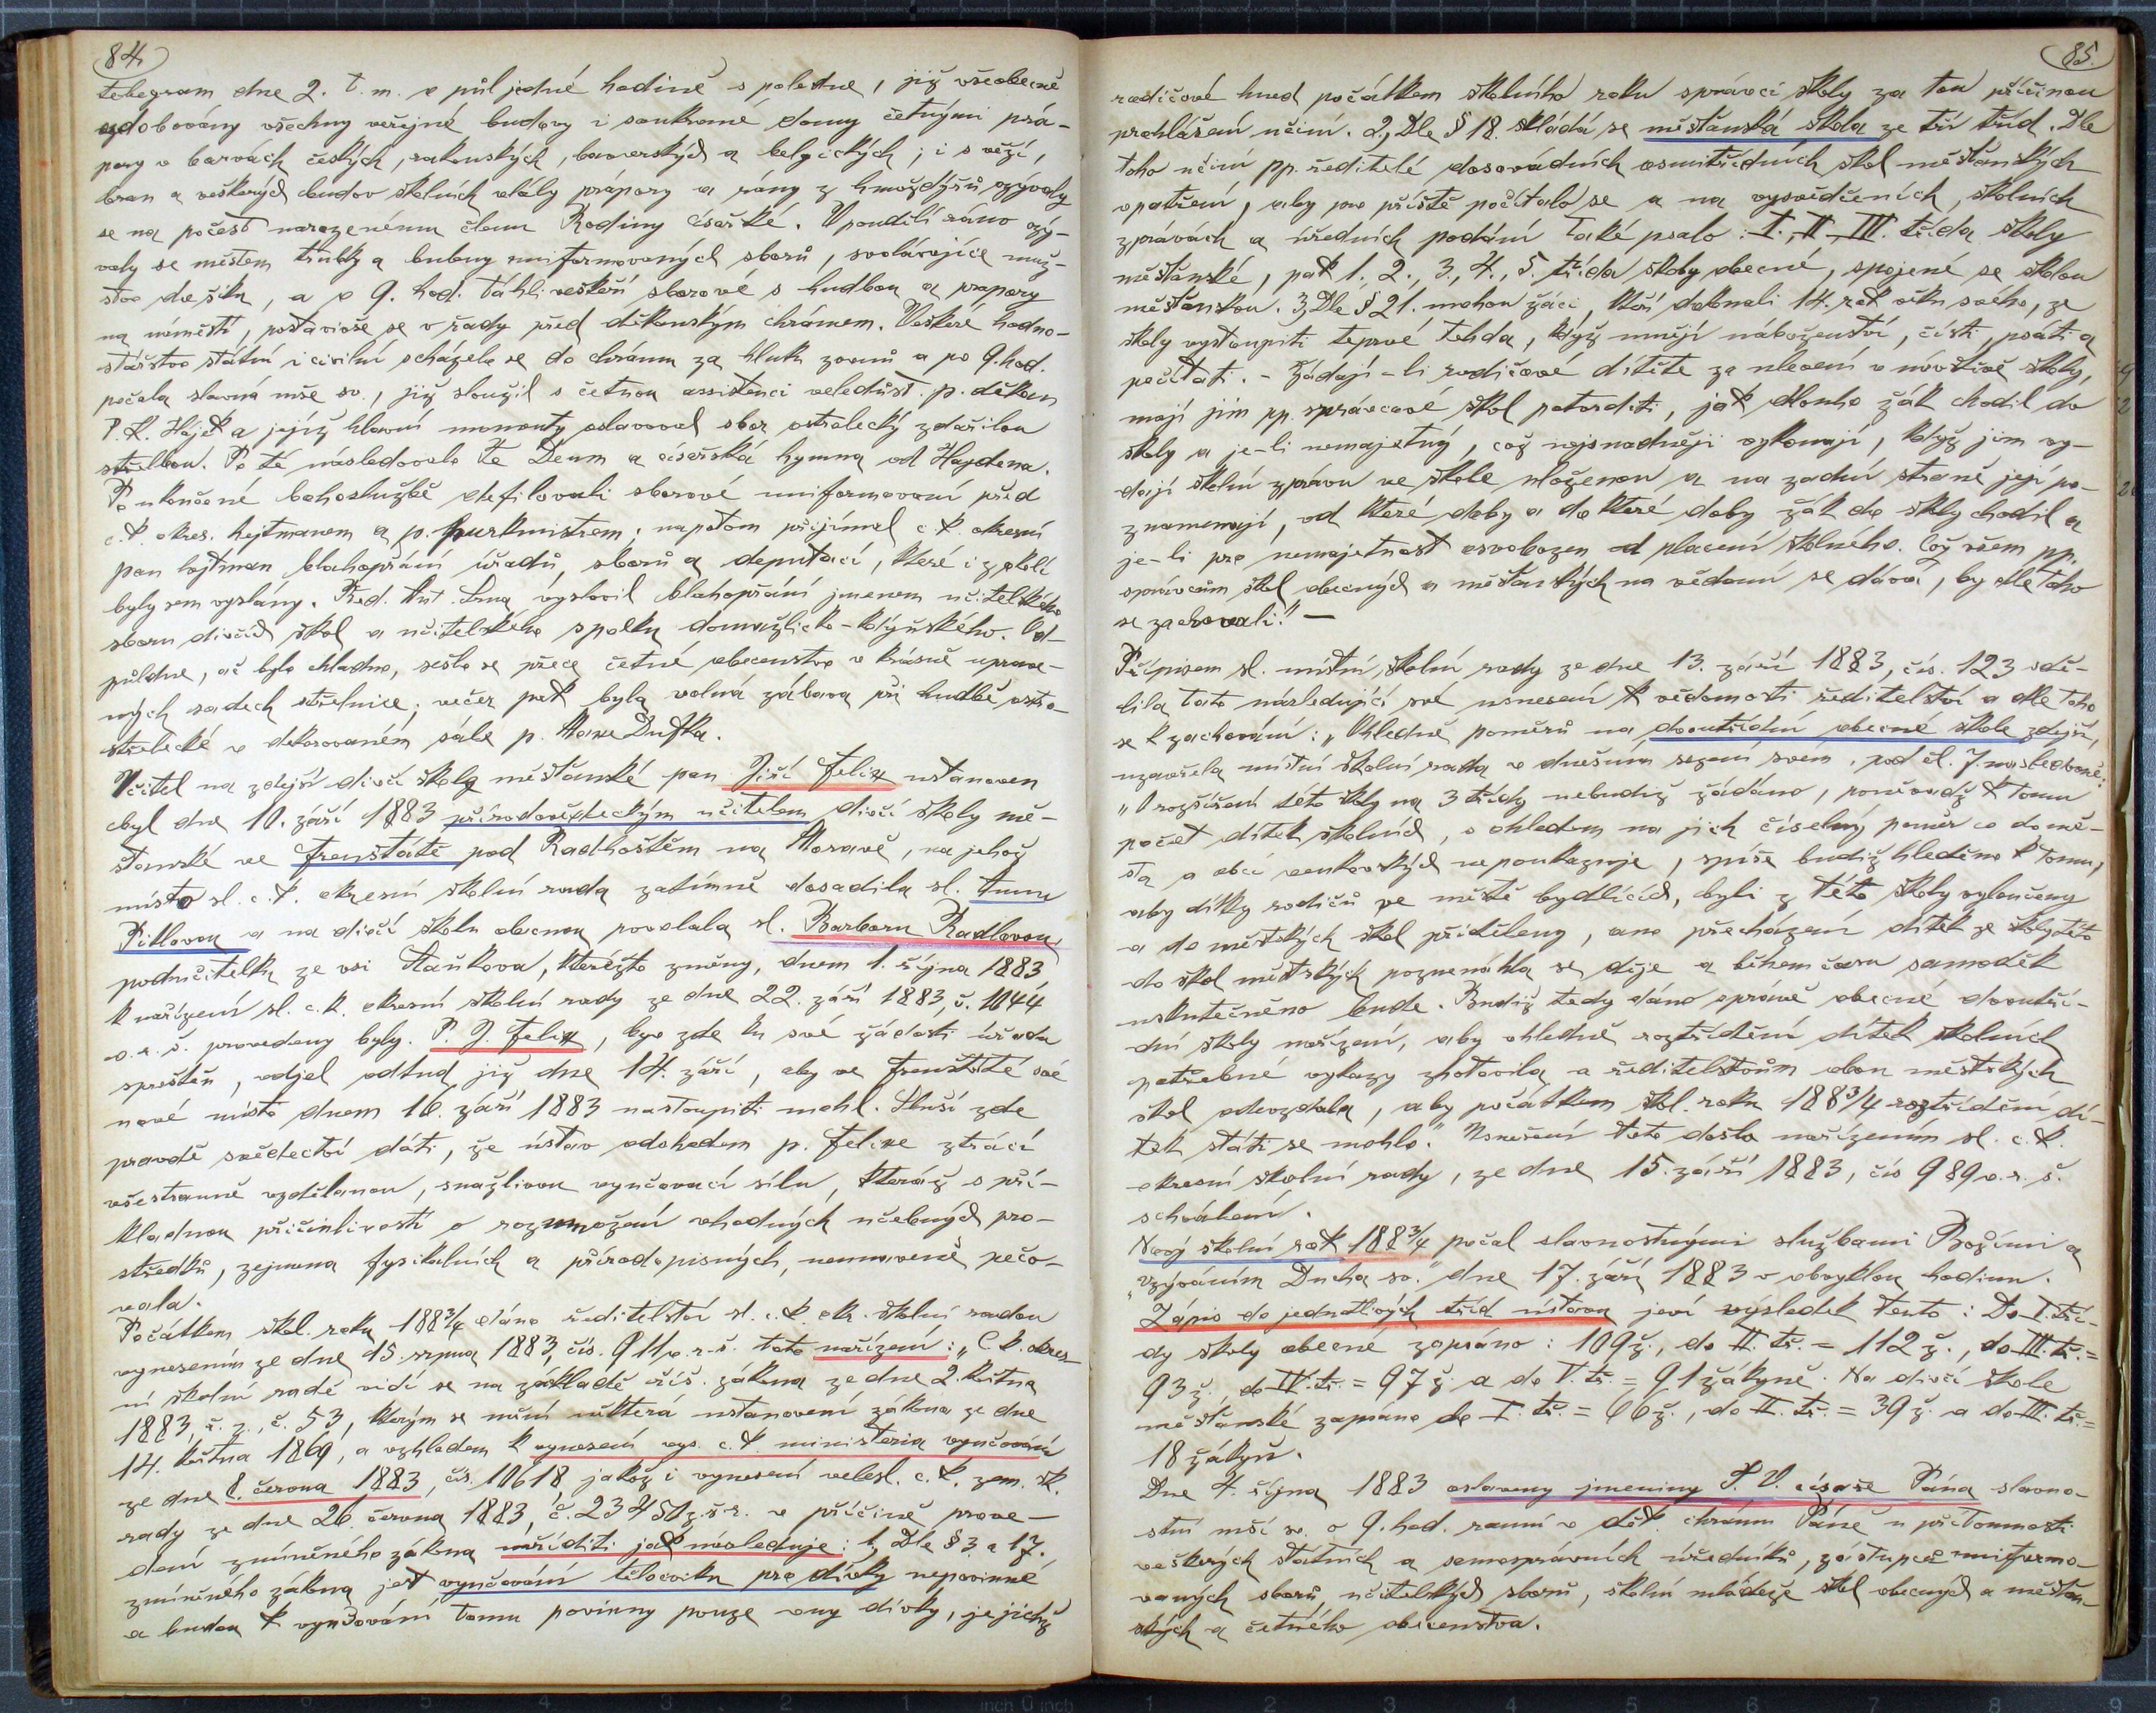 84.
telegram dne 2. t. m. o půl jedné hodině s poledne, již všeobecně
ozdobovány všechny veřejné budovy i soukromé domy četnými prá-
pory v barvách českých, rakouských, bavorských a belgických; i s věží,
bran a veškerých budov školních vlály prápory a rány z hmoždýřů ozývaly
se na počest narozenému členu Rodiny císařské. V pondělí ráno ozý-
valy se městem trubky a bubny uniformovaných sborů, svolávajíce muž-
stvo do šiku, a o 9. hod. táhli veškeří sborové s hudbou a prapory
na náměstí, postavivše se v řady před děkanským chrámem. Veškeré hodno-
stářstvo státní i civilní scházelo se do chrámu za hluku zvonů a po 9. hod.
počala slavná mše sv., již sloužil s četnou assistencí veledůst. p. děkan
P. K. Hájek a jejíž hlavní momenty oslavoval sbor ostrelecký zdařilou
střelbou. Po té následovalo Te Deum a císařská hymna od Haydena.
Po ukončené bohoslužbě defilovali sborové uniformovaní před
c. k. okres. hejtmanem a p. purkmistrem; napotom přijímal c. k. okresní
pan hejtman blahopřání úřadů, sborů a deputací, které i z okolí
byly sem vyslány. Řed. Ant. Srna vyslovil blahopřání jmenem učitelského
sboru dívčích škol a učitelského spolku domažlicko-kdyňského. Od-
půldne, ač bylo chladno, sešlo se přece četné obecenstvo v krásně uprave-
ných sadech střelnice; večer pak byla volná zábava při hudbě ostro-
střelecké v dekorovaném sále p. Maxe Duffka.
Učitel na zdejší dívčí škole měšťanské pan Jiří Felix ustanoven
byl dne 10. září 1883 přírodovědeckým učitelem dívčí školy mě-
šťanské ve Frenštátě pod Radhoštěm na Moravě, na jehož
místo sl. c. k. okresní školní rada zatímně dosadila sl. Annu
Pittlovou a na dívčí školu obecnou povolala sl. Barboru Radlovou,
podučitelku ze vsi Staňkova, kteréžto změny, dnem 1. října 1883
k nařízení sl. c. k. okresní školní rady ze dne 22. září 1883, č. 1044
o. r. š. provedeny byly. P. J. Felix, byv zde ku své žádosti úřadu
sproštěn, odjel odtud již dne 14. září, aby ve Frenštátě své
nové místo dnem 16. září 1883 nastoupiti mohl. Sluší zde
pravdě svědectví dáti, že ústav odchodem p. Felixe ztrácí
všestranně vzdělanou, snaživou vyučovací sílu, kteráž s pří-
kladnou přičinlivostí o rozmnožení vhodných učebných pro-
středků, zejmena fysikalních a přírodopisných, neunaveně pečo-
vala.
Počátkem škol. roku 188¾ dáno ředitelství sl. c. k. okr. školní radou
vynesením ze dne 15. srpna 1883, čís. 911 o. r. š. toto nařízení: „C. k. okres-
ní školní radě vidí se na základě říš. zákona ze dne 2. května
1883, ř. z., č. 53, kterým se mění některá ustanovení zákona ze dne
14. května 1869, a vzhledem k vynesení vys. c. k. ministeria vyučování
ze dne 8. června 1883, čís. 10618, jakož i vynesení velesl. c. k. zem. šk.
rady ze dne 26. června 1883, č. 23451 z. š. r. v příčině prove-
dení zmíněného zákona naříditi jak následuje: 1, Dle § 3 a 17.
zmíněného zákona jest vyučování tělocviku pro dívky nepovinné
a budou k vyučování tomu povinny pouze ony dívky, jejichž
85.
rodičové hned počátkem školního roku správci školy za tou příčinou
prohlášení učiní. 2, Dle § 18. skládá se měšťanská škola ze tří tříd. Dle
toho učiní pp. ředitelé dosavádních osmitřídních škol měšťanských
opatření, aby pro příště počítalo se a na vysvědčeních, školních
zprávách a úředních podání také psalo: I., II., III. třída školy
měšťanské, pak 1., 2., 3., 4., 5. třída školy obecné, spojené se školou
měšťanskou. 3, Dle § 21. mohou žáci, kteří dokonali 14. rok věku svého, ze
školy vystoupiti teprvé tehda, když umějí náboženství, čísti, psáti a
počítati. – Žádají-li rodičové dítěte za ulevení v návštěvě školy,
mají jim pp. správcové škol potvrditi, jak dlouho žák chodil do
školy a je-li nemajetný, což nejsnadněji vykonají, když jim vy-
dají školní zprávu ve škole uloženou a na zadní straně její po-
znamenají, od které doby a do které doby žák do školy chodil a
je-li pro nemajetnost osvobozen od placení školného. Což všem pp.
správcům škol obecných a měšťanských na vědomí se dává, by dle toho
se zachovali." –
Přípisem sl. místní školní rady ze dne 13. září 1883, čís. 123 sdě-
lila tato následující své usnesení k vědomosti ředitelství a dle toho
se k zachování: „Ohledně poměrů na dvoutřídní obecné škole zdejší,
uzavřela místní školní rada v dnešním sezení svém, pod čl. 7. následovně:
„O rozšíření této školy na 3 třídy nebudiž žádáno, poněvadž k tomu
počet dítek školních, s ohledem na jich číselný poměr co do mě-
sta a obcí venkovských nepoukazuje, spíše budiž hleděno k tomu,
aby dítky rodičů ve městě bydlících, byli z této školy vyloučeny
a do městských škol přiděleny, ano přecházení dítek ze školy této
do škol městských poznenáhla se děje a během času samoděk
uskutečněno bude. Budiž tedy dáno správě obecné dvoutří-
dní školy nařízení, aby ohledně roztřídění dítek školních
potřebné výkazy zhotovila a ředitelstvům obou městských
škol odevzdala, aby počátkem škol. roku 188¾ roztřídění dí-
tek státi se mohlo." Usnešení toto došlo nařízením sl. c. k.
okresní školní rady, ze dne 15. září 1883, čís 989 o. r. š.
schválení.
Nový školní rok 188¾ počal slavnostnými službami Božími a
„vzýváním Ducha sv." dne 17. září 1883 v obvyklou hodinu.
Zápis do jednotlivých tříd ústavu jeví výsledek tento: Do I. tří-
dy školy obecné zapsáno: 109 ž., do II. tř. = 112 ž., do III. tř. =
93 ž., do IV. tř. = 97 ž. a do V. tř. = 91 žákyně. Na dívčí škole
měšťanské zapsáno do I. tř. = 66 ž., do II. tř. = 39 ž. a do III. tř. =
18 žákyň.
Dne 4. října 1883 oslaveny jmeniny J. V. císaře Pána slavno-
stní mší sv. o 9. hod. ranní v děk. chrámu Páně u přítomnosti
veškerých státních a samosprávních úředníků, zástupců uniformo-
vaných sborů, učitelských sborů, školní mládeže škol obecných a měšťan-
ských a četného obecenstva.